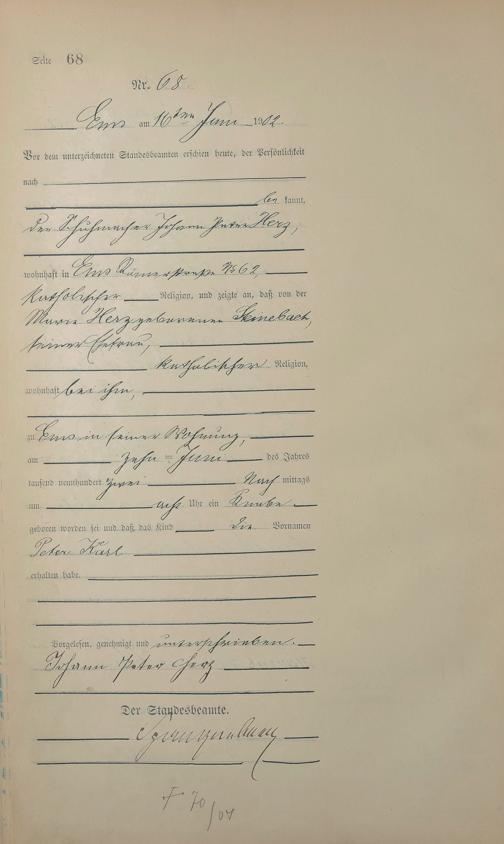 Seite 68
Nr. 68.
Ems am 16ten Juni 1902.
Vor dem unterzeichneten Standesbeamten erschien heute, der Persönlichkeit
nach
be kannt,
der Schuhmacher Johann Peter Herz,
wohnhaft in Ems Römerstraße No 62,
katholischer Religion, und zeigte an, daß von der
Marie Herz geborenen Steinebach,
seiner Ehefrau,
katholischer Religion,
wohnhaft bei ihm,
zu Ems in seiner Wohnung,
am zehn = Juni des Jahres
tausend neunhundert zwei Nach mittags
um acht Uhr ein Knabe
geboren worden sei und daß das Kind die Vornamen
Peter Karl
erhalten habe.
Vorgelesen, genehmigt und unterschrieben.
Johann Peter Herz
Der Standesbeamte.
70/04